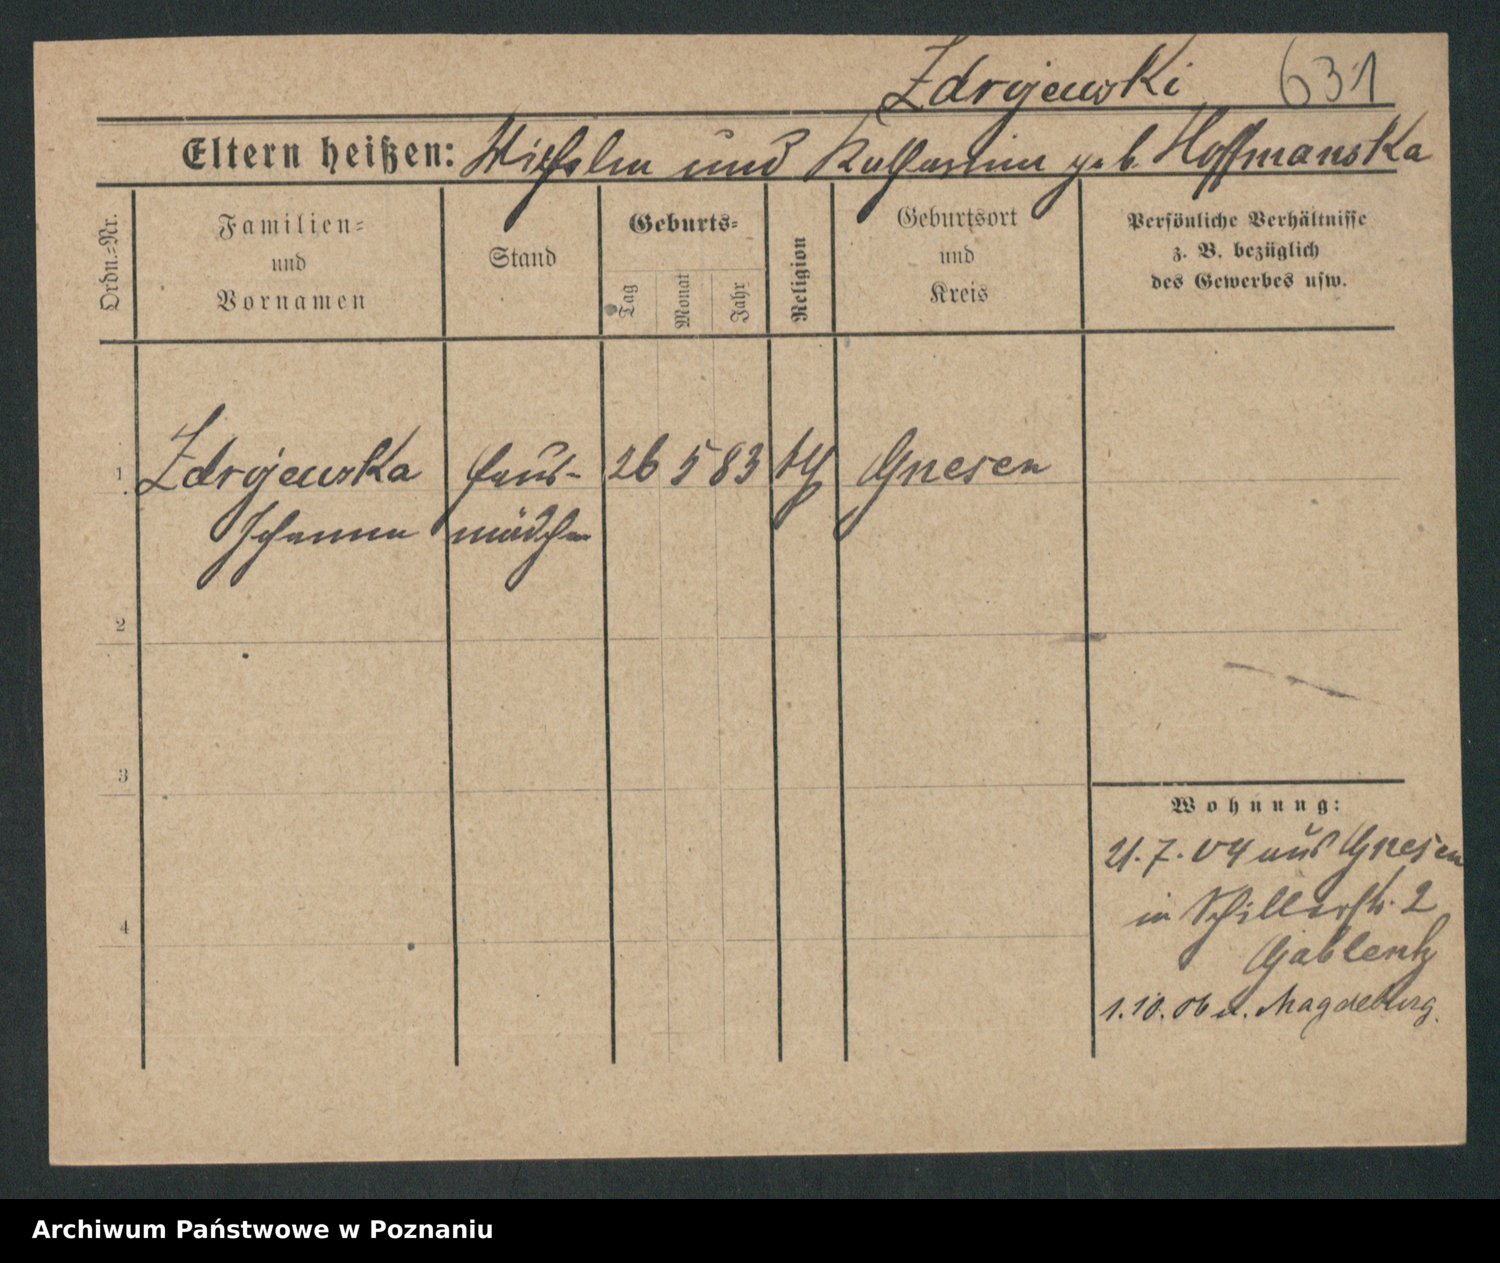 Zdrojewski 631
Eltern heißen: Wilhelm und Katharina geb. Hoffmanska
Ordn.-Nr.
Familien- und Vornamen
Stand
Geburts-
Tag Monat Jahr
Religion
Geburtsort und Kreis
Persönliche Verhältnisse
z. B. bezüglich
des Gewerbes usw.
1 Zdrojewska Haus- 26 5 83 Gnesen
Johanna mädchen
2
3
4
Wohnung:
21.7.04 aus Gnesen
in Schillerstr. 2
Gablentz
1.10.06 n. Magdeburg.
Archiwum Państwowe w Poznaniu